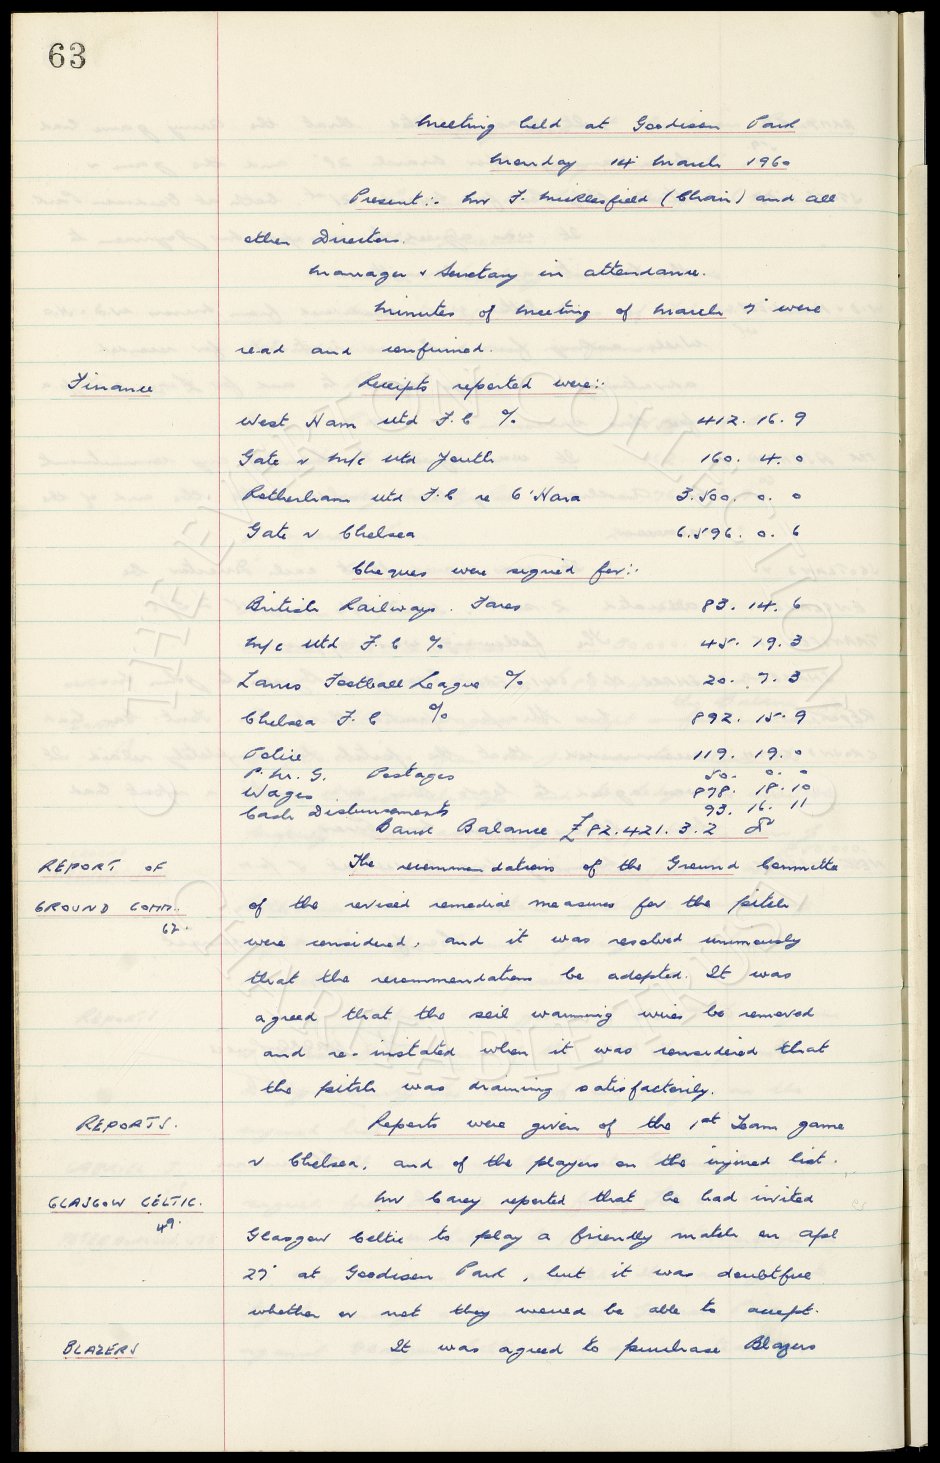 63
Meeting held at Goodison Park
Monday 14' March 1960
Present:- Mr F. Micklesfield (Chair) and all
other Directors.
Manager & Secretary in attendance.
Minutes of meeting of March 7' were
read and confirmed.
Finance Receipts reported were:-
West Ham Utd F.C % 412. 16. 9
Gate v M/c Utd Youth 160. 4. 0
Rotherham Utd F.C re O'Hara 3.500. 0. 0
Gate v Chelsea 6.596. 0. 6
Cheques were signed for:-
British Railways. Fares 83. 14. 6
M/c Utd F.C % 45. 19. 3
Lancs Football League % 20. 7. 3
Chelsea F.C % 892. 15. 9
Police 119. 19. 0
P.M.G. Postages 50. 0. 0
Wages 878. 18. 10
Cash Disbursements 93. 16. 11
Bank Balance £82.421. 3. 2
REPORT OF The recommendations of the Ground Committe
GROUND COMM. of the revised remedial measures for the pitch
62. were considered, and it was resolved unimously
that the recommendations be adopted. It was
agreed that the soil warming wires be removed
and re-instated when it was considered that
the pitch was draining satisfactorily.
REPORTS. Reports were given of the 1st Team game
v Chelsea, and of the players on the injured list.
GLASGOW CELTIC. Mr Carey reported that he had invited
49. Glasgow Celtic to play a friendly match on Apl
27' at Goodison Park, but it was doubtful
whether or not they would be able to accept.
BLAZERS It was agreed to purchase Blazers